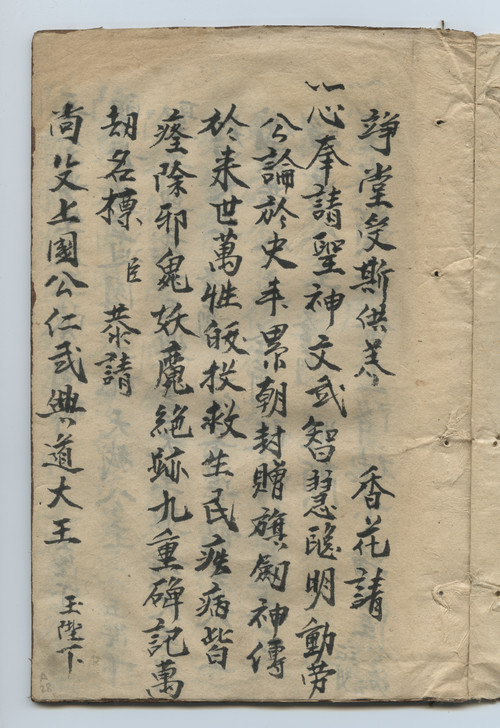 竫堂受斯供养 香花請
一心奉請聖神文武智慧聰明勳勞
公論於史来累朝封贈旗劍神傳
於来世萬姓皈投救生民疾病皆
痊除邪鬼妖魔絶跡九重碑記萬
劫名標 臣 恭請
尚父上國公仁武興道大王 玉陛下